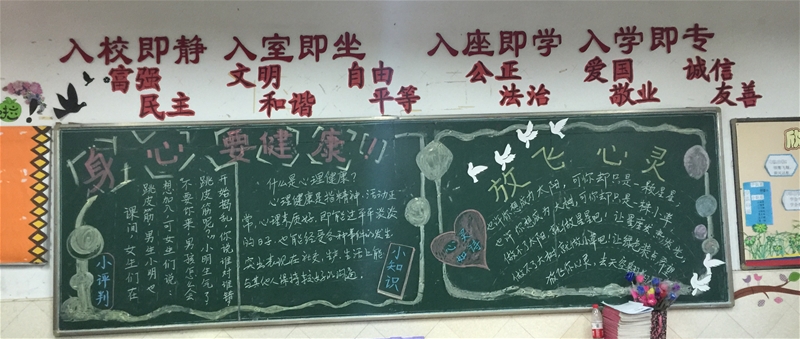 入校即静 入室即坐 入座即学 入学即专
富强 文明 自由 公正 爱国 诚信
民主 和谐 平等 法治 敬业 友善
身心要健康!!
课间,女生们在
跳皮筋,男生小明也
想加入,可女生们说:
不要你来,男孩怎么会
跳皮筋呢?小明生气了
开始捣乱,你说谁对谁错
小评判
什么是心理健康?
心理健康是指精神、活动正
常、心理素质好,即能过平平淡淡
的日子,也能经受各种事件的发生
突出表现在社交、生产、生活上能
与其他人保持较好的沟通
小知识
放飞心灵
也许你想成为太阳,可你却只是一颗星星
也许你想成为大树,可你却只是一株小草
做不了太阳,就做星星吧!让星星发出光